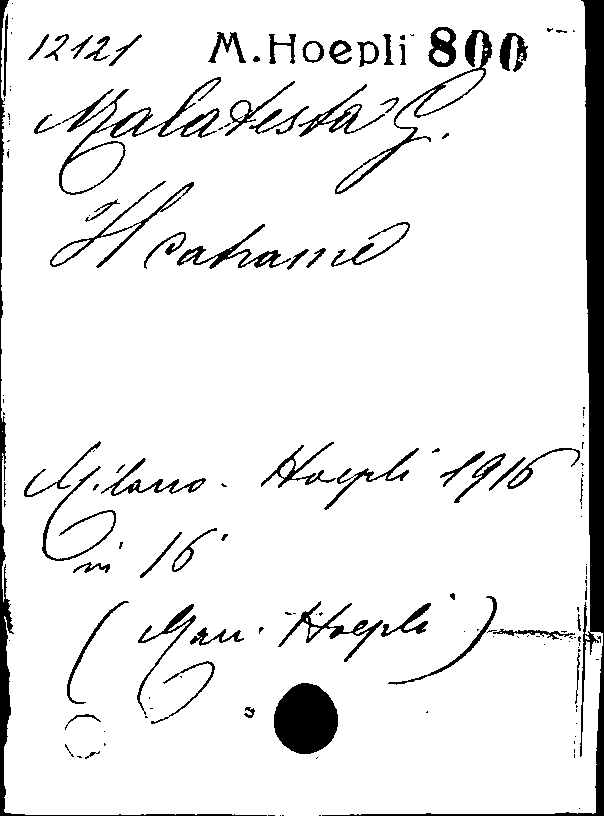 12121 M. Hoepli 800
Malatesta G.
Il catrame
Milano - Hoepli 1916
in 16°
(Man. Hoepli)